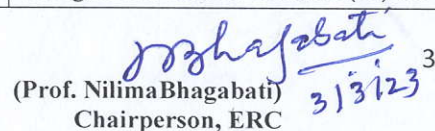 Bhagabati
3
3/3/23
(Prof. NilimaBhagabati)
Chairperson, ERC